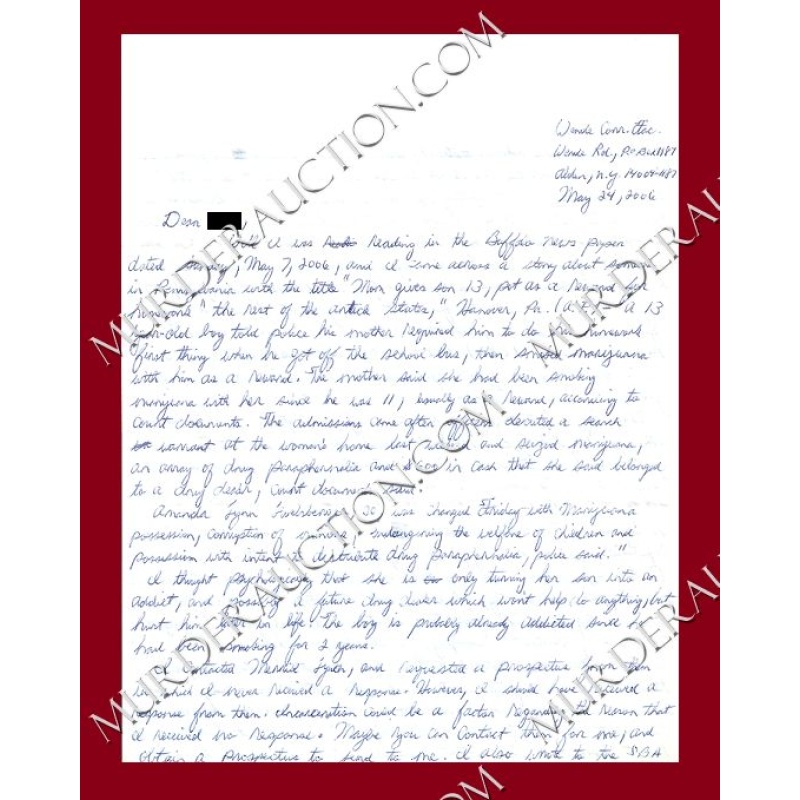 Wende Corr. Fac.
Wende Rd., P.O. Box 1187
Alden, N.Y. 14004-1187
May 24, 2006
Dear
I was reading in the Buffalo News paper
dated Sunday, May 7, 2006, and I came across a story about someone
in Pennsylvania with the title "Mom gives son 13, pot as a reward for
homework" the rest of the article states, "Hanover, Pa. A 13
year-old boy told police his mother required him to do his homework
first thing when he got off the school bus, then smoked marijuana
with him as a reward. The mother said she had been smoking
marijuana with her since he was 11, usually as a reward, according to
court documents. The admissions came after officers executed a search
warrant at the woman's home last weekend and seized marijuana,
an array of drug paraphernalia and in cash that she said belonged
to a drug dealer, court documents said.
Amanda Lynn was charged Friday with Marijuana
possession, corruption of minors, endangering the welfare of children and
possession with intent to distribute drug paraphernalia, police said."
I thought that she is only turning her son into an
addict, and possibly a future drug dealer which won't help do anything, but
hurt him later in life. The boy is probably already addicted since he
had been smoking for 2 years.
I contacted Merrill Lynch, and requested a prospectus from them
in which I never received a response. However, I should have received a
response from them. Incarceration could be a factor reason that
I received no response. Maybe you can contact them for me, and
obtain a prospectus to send to me. I also wrote to the SBA
MURDERAUCTION.COM
MURDERAUCTION.COM
MURDERAUCTION.COM
MURDERAUCTION.COM